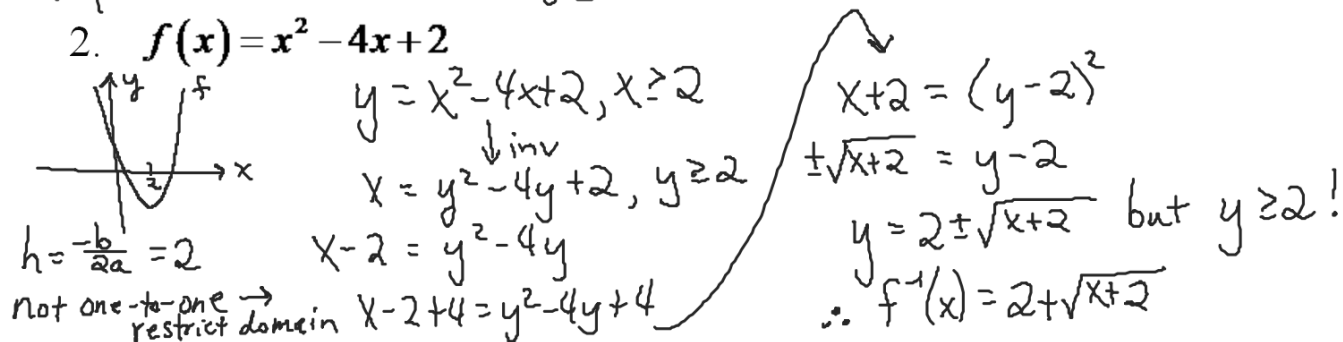 2. f(x) = x² − 4x + 2
y f
x
2
h = -b/2a = 2
not one-to-one →
restrict domain
y = x² - 4x + 2, x ≥ 2
↓ inv
x = y² - 4y + 2, y ≥ 2
x - 2 = y² - 4y
x - 2 + 4 = y² - 4y + 4
x + 2 = (y - 2)²
±√(x+2) = y - 2
y = 2 ± √(x+2) but y ≥ 2!
∴ f⁻¹(x) = 2 + √(x+2)